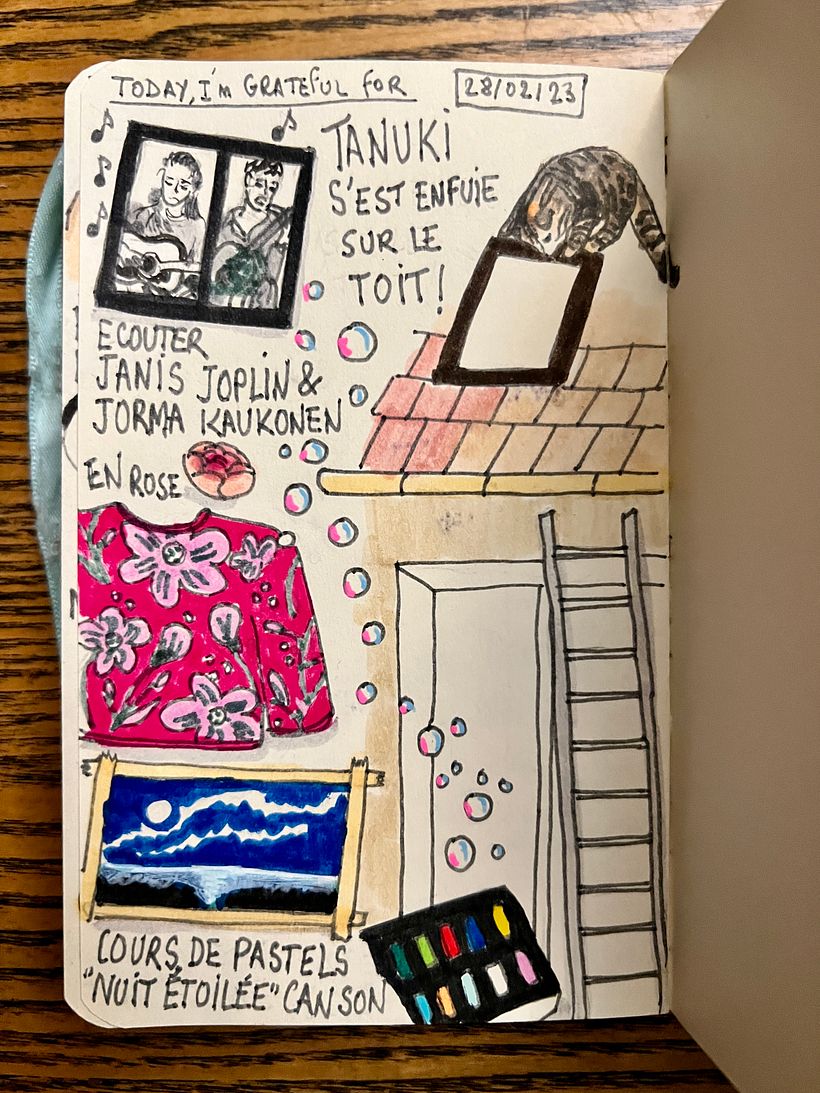 TODAY, I'm GRATEFUL FOR
28/02/23
TANUKI
S'EST ENFUIE
SUR LE
TOIT!
ECOUTER
JANIS JOPLIN &
JORMA KAUKONEN
EN ROSE
COURS DE PASTELS
"NUIT ÉTOILÉE" CANSON